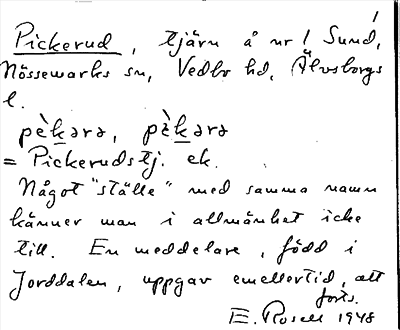 1
Pickerud, tjärn å nr 1 Sund,
Nössemarks sn, Vedbo hd, Älvsborgs
l.
pèkərə, pèkərə
= Pickerudstj. ek.
Något "ställe" med samma namn
känner man i allmänhet icke
till. En meddelare, född i
Jorddalen, uppgav emellertid, att
forts.
E. Rosell 1948